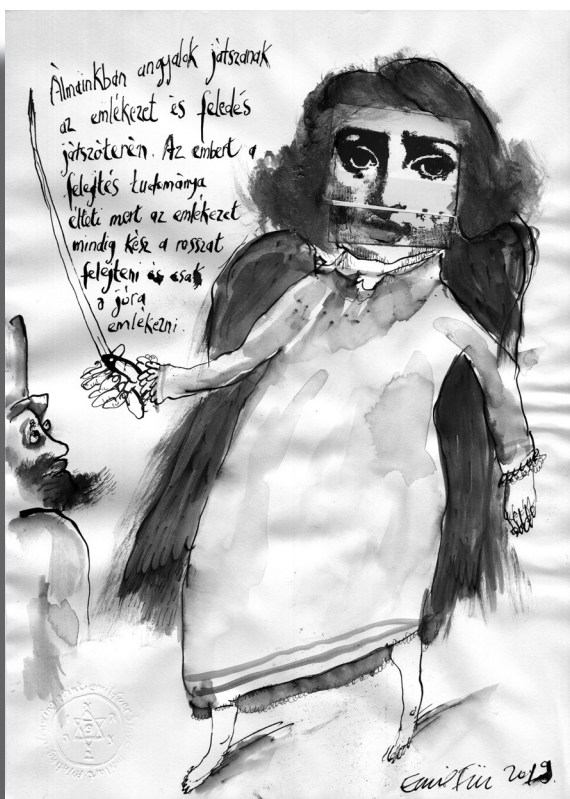 Álmainkban angyalok játszanak
az emlékezet és feledés
játszóterén. Az embert a
felejtés tudománya
élteti mert az emlékezet
mindig kész a rosszat
felejteni és csak
a jóra
emlékezni.
2019.